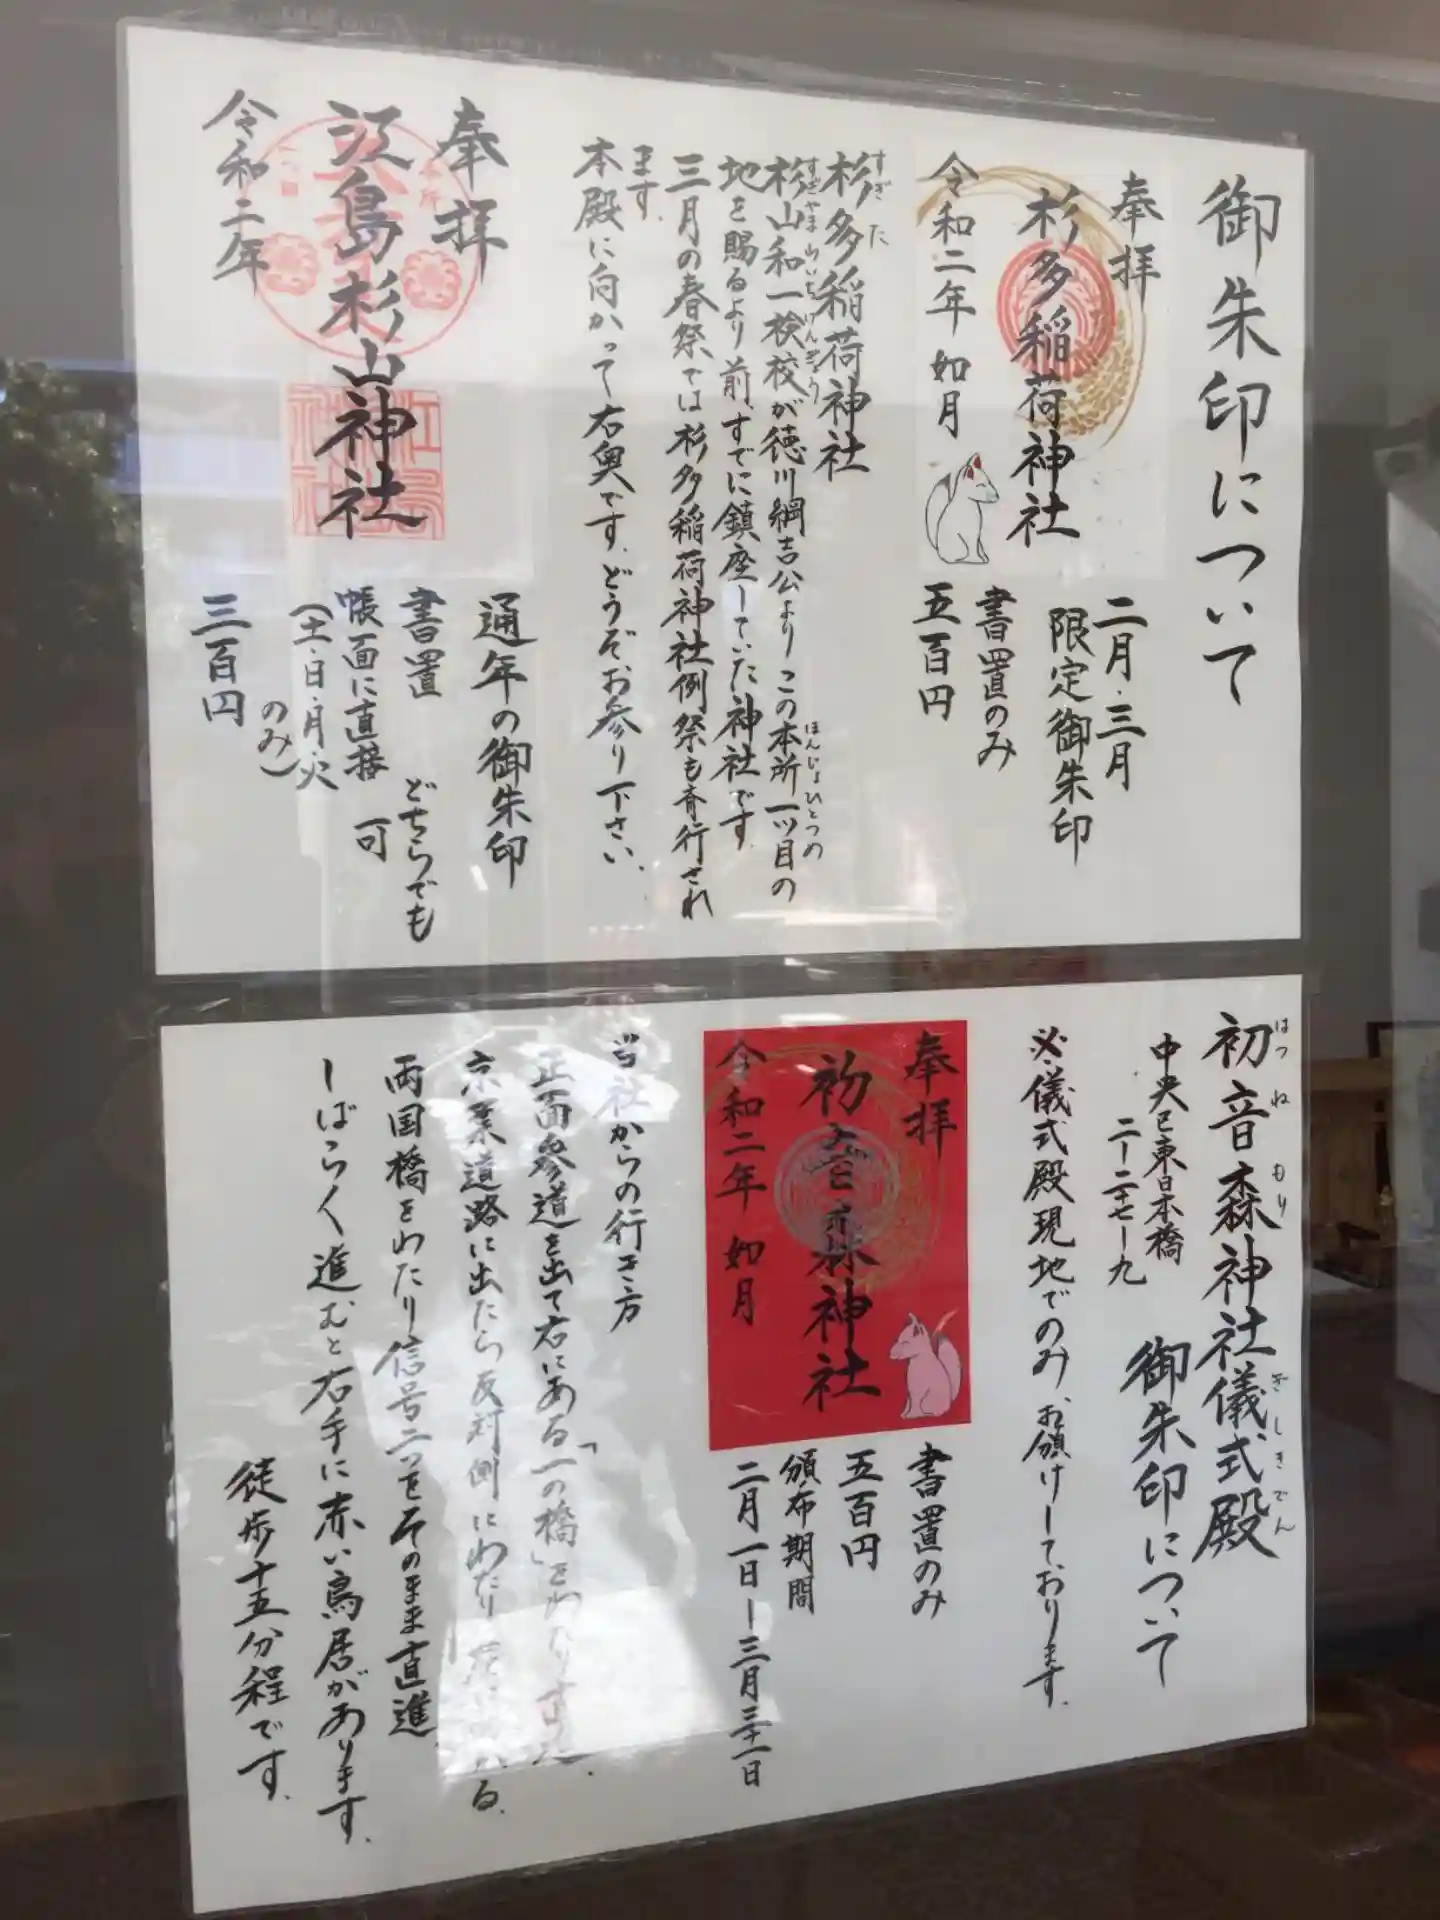 御朱印について
奉拝
杉多稲荷神社
令和二年 如月
二月・三月
限定御朱印
書置のみ
五百円
すぎた
杉多稲荷神社
すぎやまわいちけんぎょう
杉山和一検校が徳川綱吉公よりこの本所一ッ目の
ほんじょひとつめの
地を賜るより前、すでに鎮座していた神社です
三月の春祭では杉多稲荷神社例祭も斉行され
ます。
本殿に向かって右奥です、どうぞお参り下さい、
奉拝
江島杉山神社
令和二年
通年の御朱印
書置 どちらでも
帳面に直接 可
(土・日・月・火
のみ)
三百円
はつねもり ぎしきでん
初音森神社儀式殿
御朱印について
中央区東日本橋
二ー二十七ー九
※儀式殿現地でのみ、お頒けしております。
奉拝
初音森神社
令和二年 如月
書置のみ
五百円
頒布期間
二月一日ー三月三十一日
当社からの行き方
正面参道を出て右にある「一の橋」をわたり
京葉道路に出たら反対側にわたり
両国橋をわたり信号二つをそのまま直進
しばらく進むと右手に赤い鳥居があります。
徒歩十五分程です。